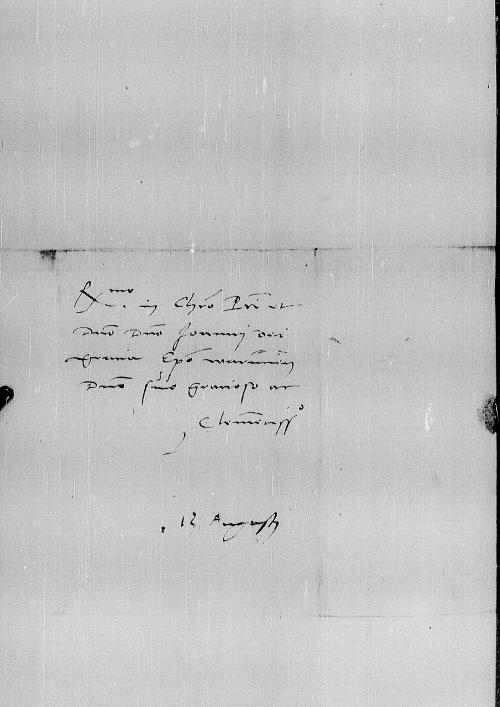 R^mo in Chro Pri et
Dno Dno Joanni dei
gratia Epo warmien
Dno suo gratioso ac
Clementiss^o
12 Augusti